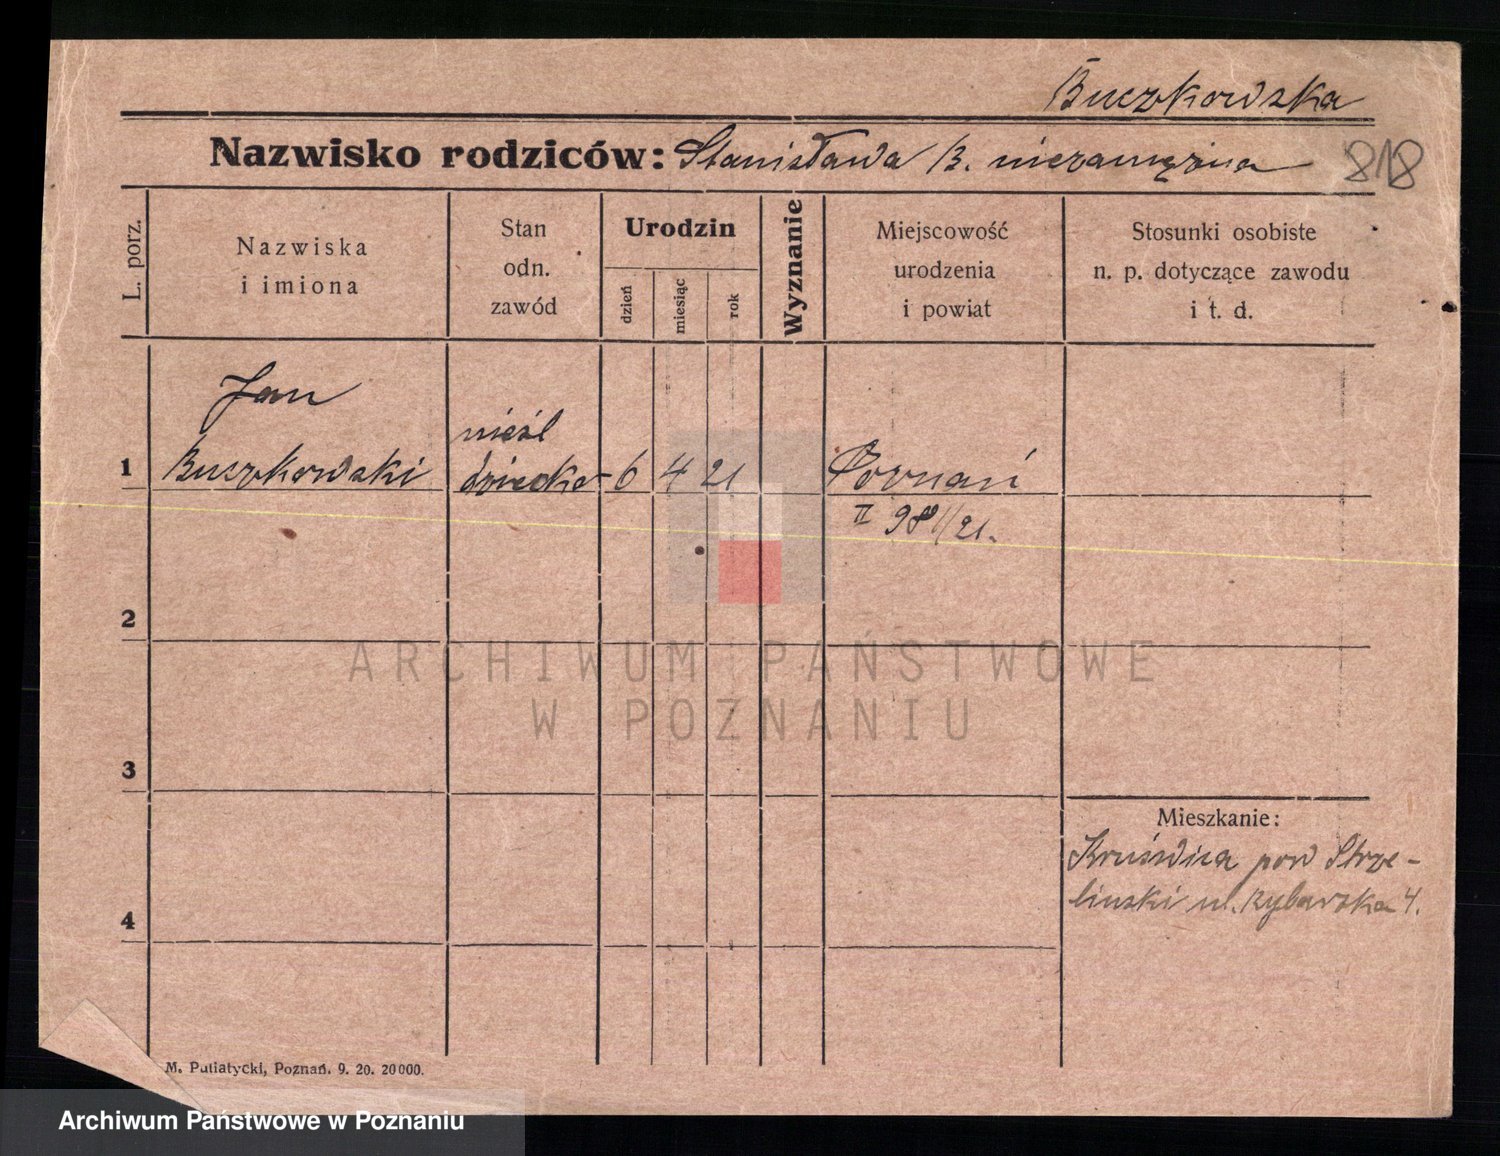 Buczkowska
Nazwisko rodziców: Stanisława B. niezamężna 818
L. porz.
Nazwiska
i imiona
Stan
odn.
zawód
Urodzin
dzień
miesiąc
rok
Wyznanie
Miejscowość
urodzenia
i powiat
Stosunki osobiste
n. p. dotyczące zawodu
i t. d.
Jan
nieśl
1 Buczkowski dziecko 6 4 21 Poznań
II 98 / 21.
2
ARCHIWUM PAŃSTWOWE
W POZNANIU
3
Mieszkanie:
Kruświca pow Strze-
linski ul. Rybarska 4.
4
M. Putiatycki, Poznań. 9. 20. 20000.
Archiwum Państwowe w Poznaniu